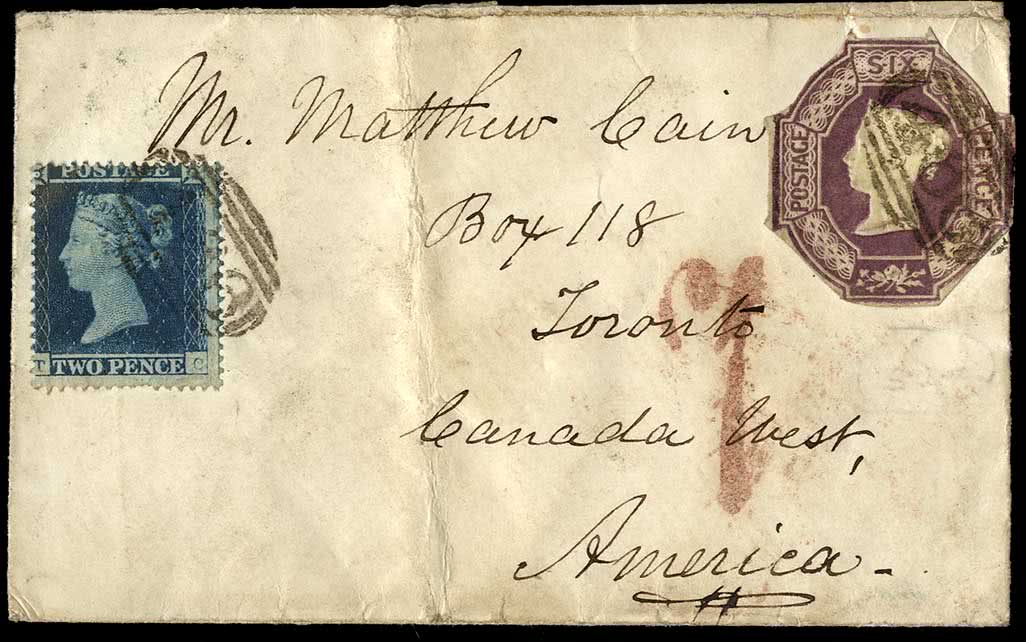 Mr. Matthew Cain
Box 118
Toronto
Canada West,
America -
POSTAGE
TWO PENCE
T
C
SIX
POSTAGE
PENCE